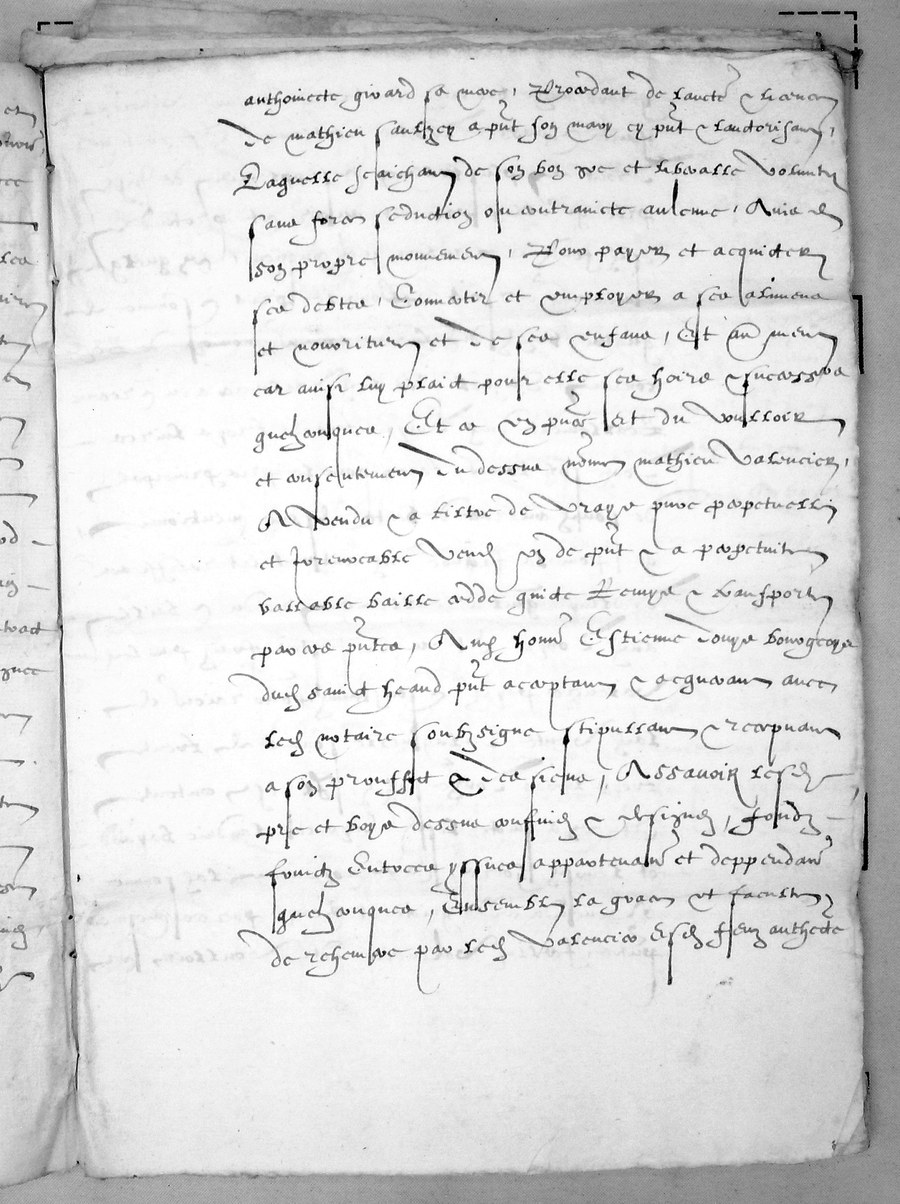 anthoinecte girard sa mere, Procedant de laucte & licence
de mathieu saulzey a pnt son mary cy pnt & lauctorisant,
Laquelle scaichant de son bon gre et liberalle volunte
sans force seduction ou contraincte aulcune, Ains de
son propre mouvement, Pour payer et acquicter
ses debtes, Convertir et employer a ses alimens
et nourriture et de ses enfans, Et au
car ainsi luy plaict pour elle ses hoirs & successeurs
quelzconques, Et ce en pnce et du voulloir
et consentement du dessus nomme mathieu Valencier,
A Vendu & a tiltre de vraye pure perpetuelle
et Irrevocable vend des pnt & a perpetuite
vallable baille cedde quicte Remye & transporte
par ces pntes, A honn Estienne bourgeoys
dud sainct heand pnt acceptant & acquerant avec
led notaire soubzsigne stipullant & recepvant
a son prouffit & des siens, Assavoir lesd
pre et boys dessus confines & designes, fondz
fruictz Entrees yssues appartenan et deppendan
quelzconques, Ensemble la grace et faculte
de rehemere par led Valencier esd feuz anthecte